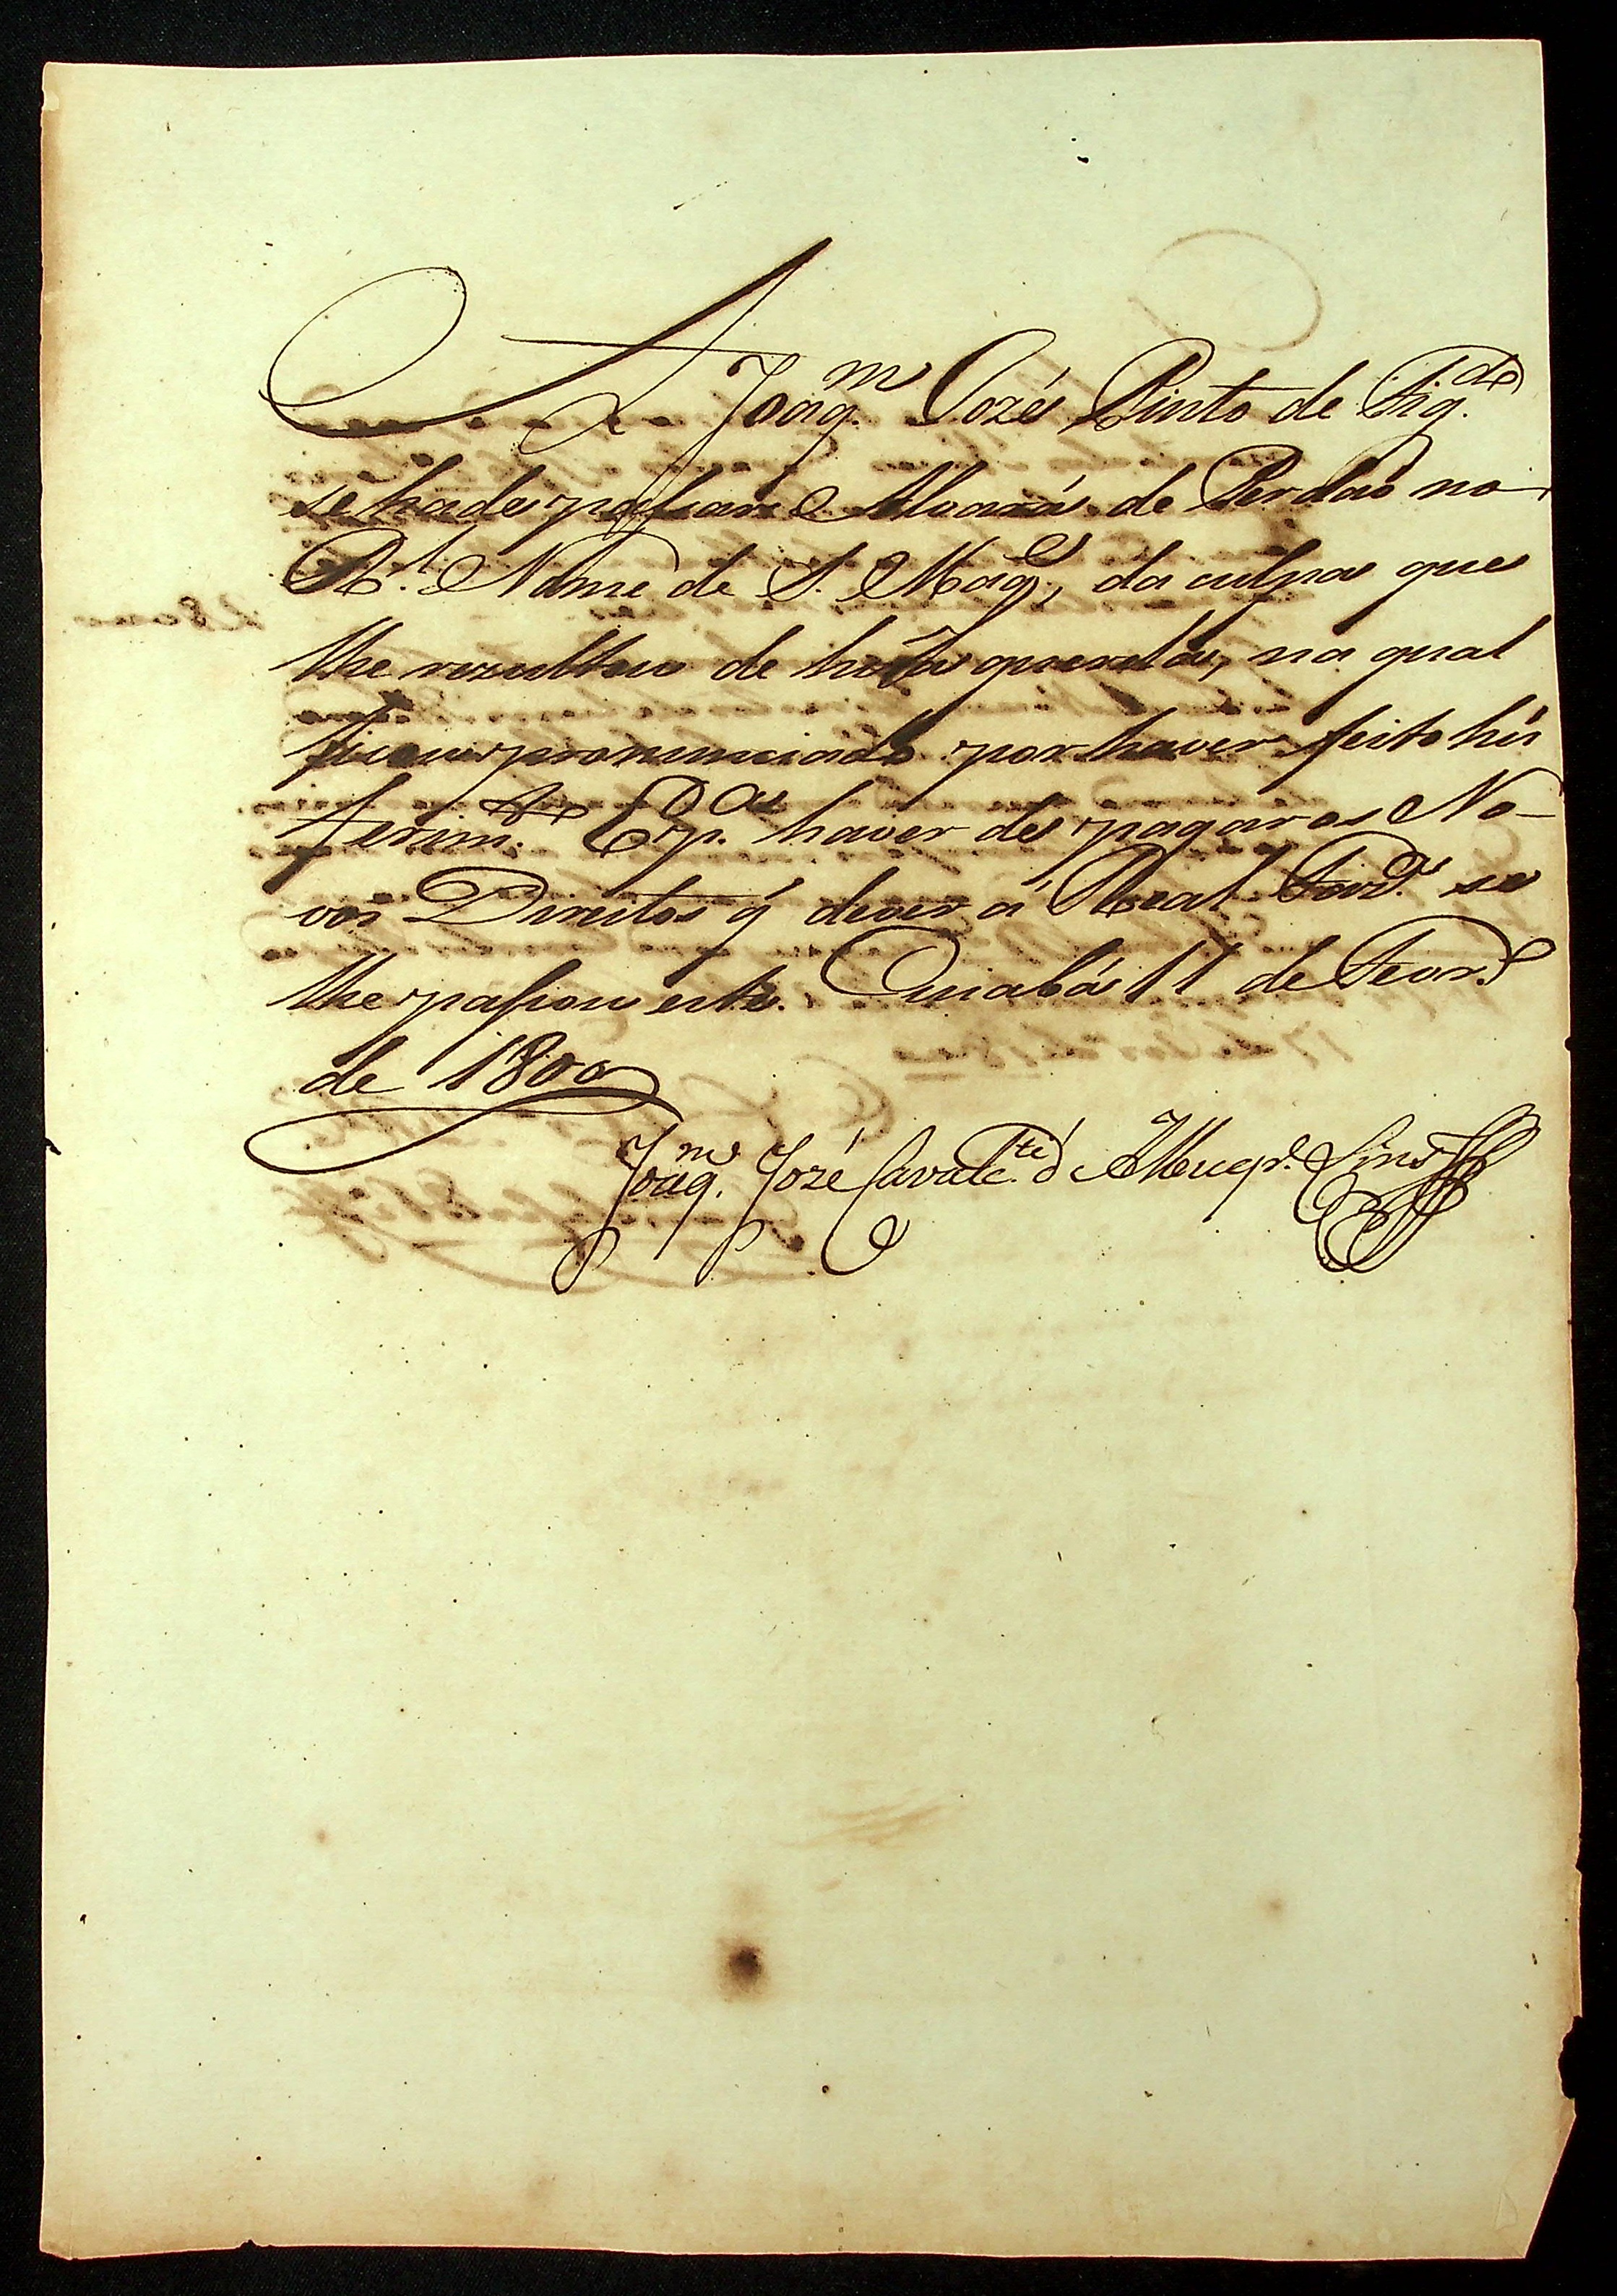 A Joaq.m José Pinto de Fig.do
se hade passar Alvará de Perdaõ no
R.l Nome de S. Mag.e, da culpa que
lhe rezultou de húa querela, na qual
ficou pronunciado por haver feito hú
ferim.to E p.a haver de pagar os No-
vos Direitos q̃ dever á Real Faz.da se
lhe passou este. Cuiabá 11 de Fevr.o
de 1800
Joaq.m José Cavalc.te d'Albuq.e Lins